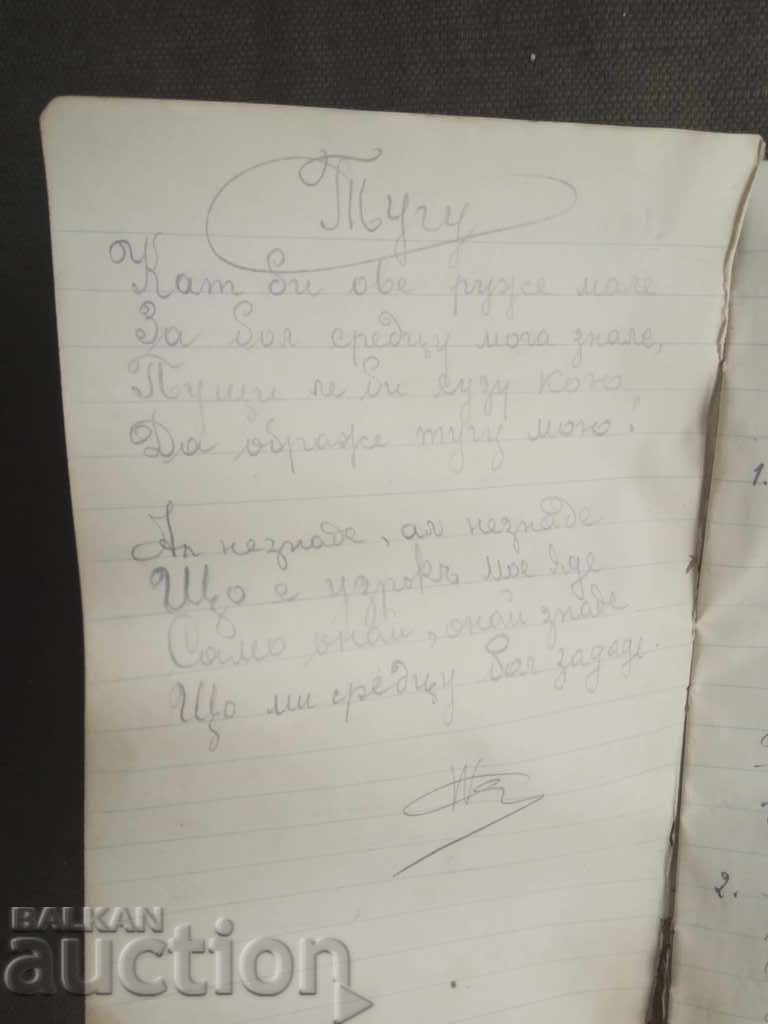 Тугу
Кат би ове руже мале
За бол средцу мога знале,
Пущи ле би сузу кою
Да ображе тугу мою!
Ал незнаде, ал незнаде
Що е узрокъ мое яде
Само онай, онай знаде
Що ми средцу бол зададе.
1.
2.
BALKAN
auction